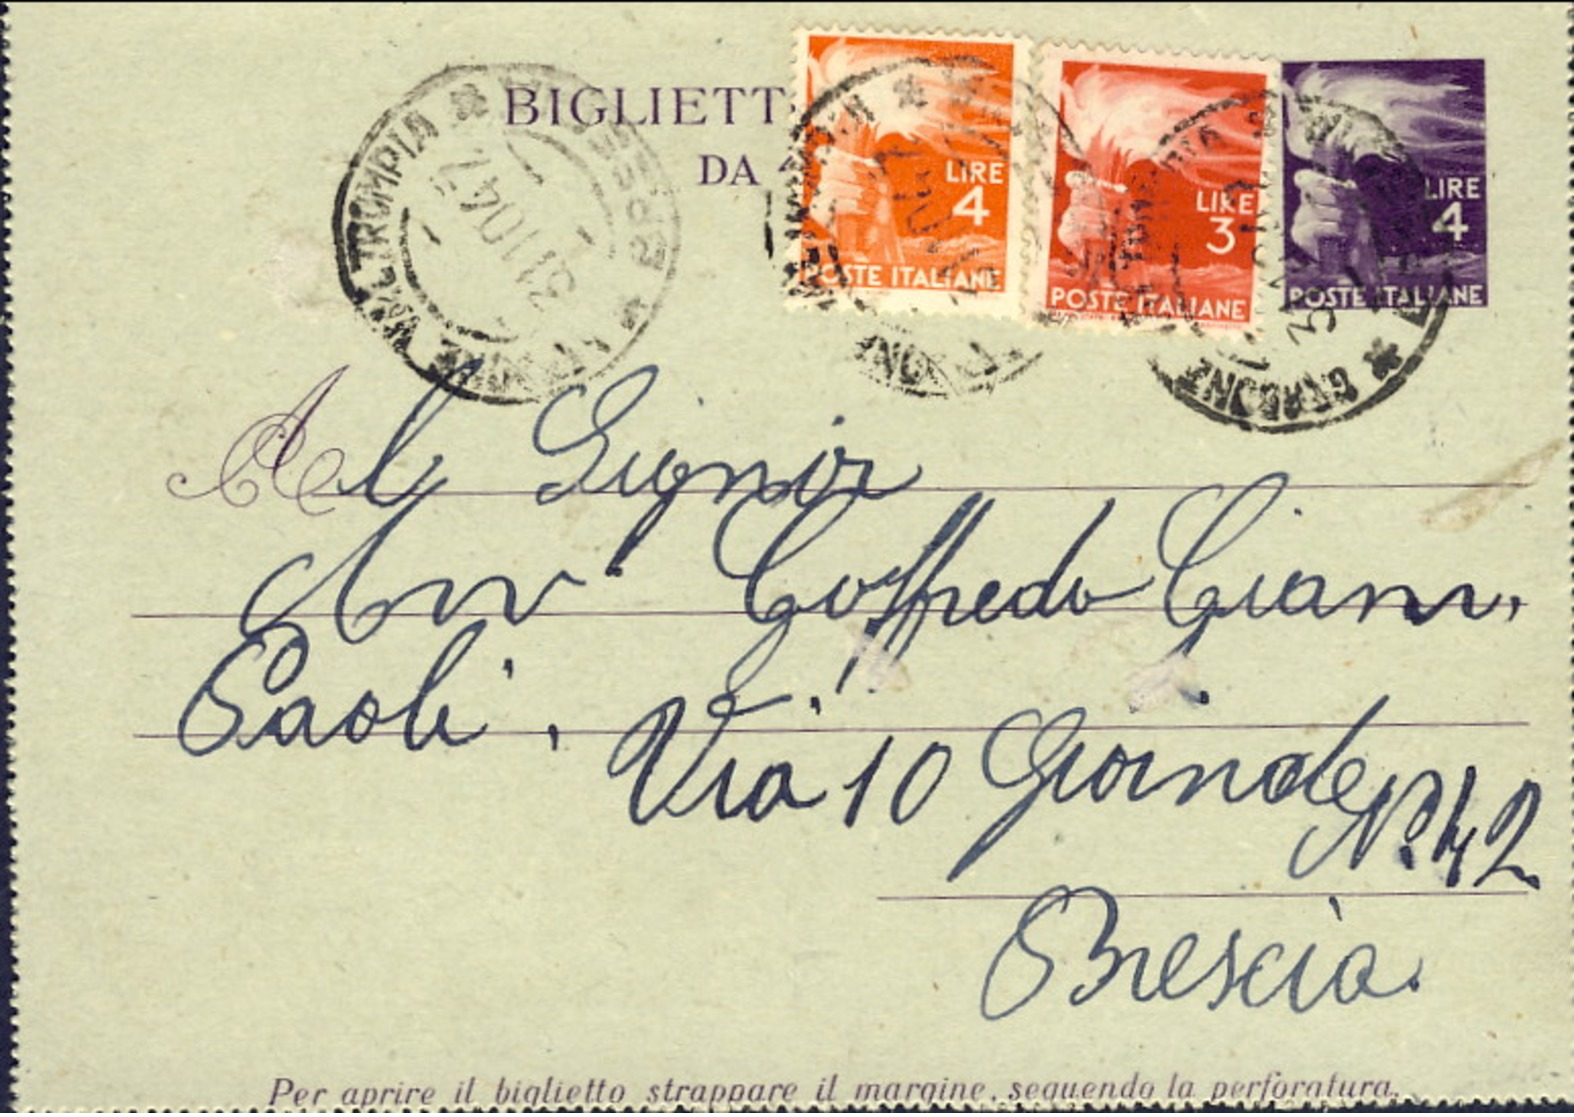 BIGLIETT
DA
LIRE
4
POSTE ITALIANE
LIRE
3
POSTE ITALIANE
LIRE
4
POSTE ITALIANE
GARDONE VALTROMPIA * BRESCIA *
31 10 47
Al Signor
Avv Goffredo Giam,
Paoli, Via 10 Giornate
N° 42
Brescia.
Per aprire il biglietto strappare il margine, seguendo la perforatura.